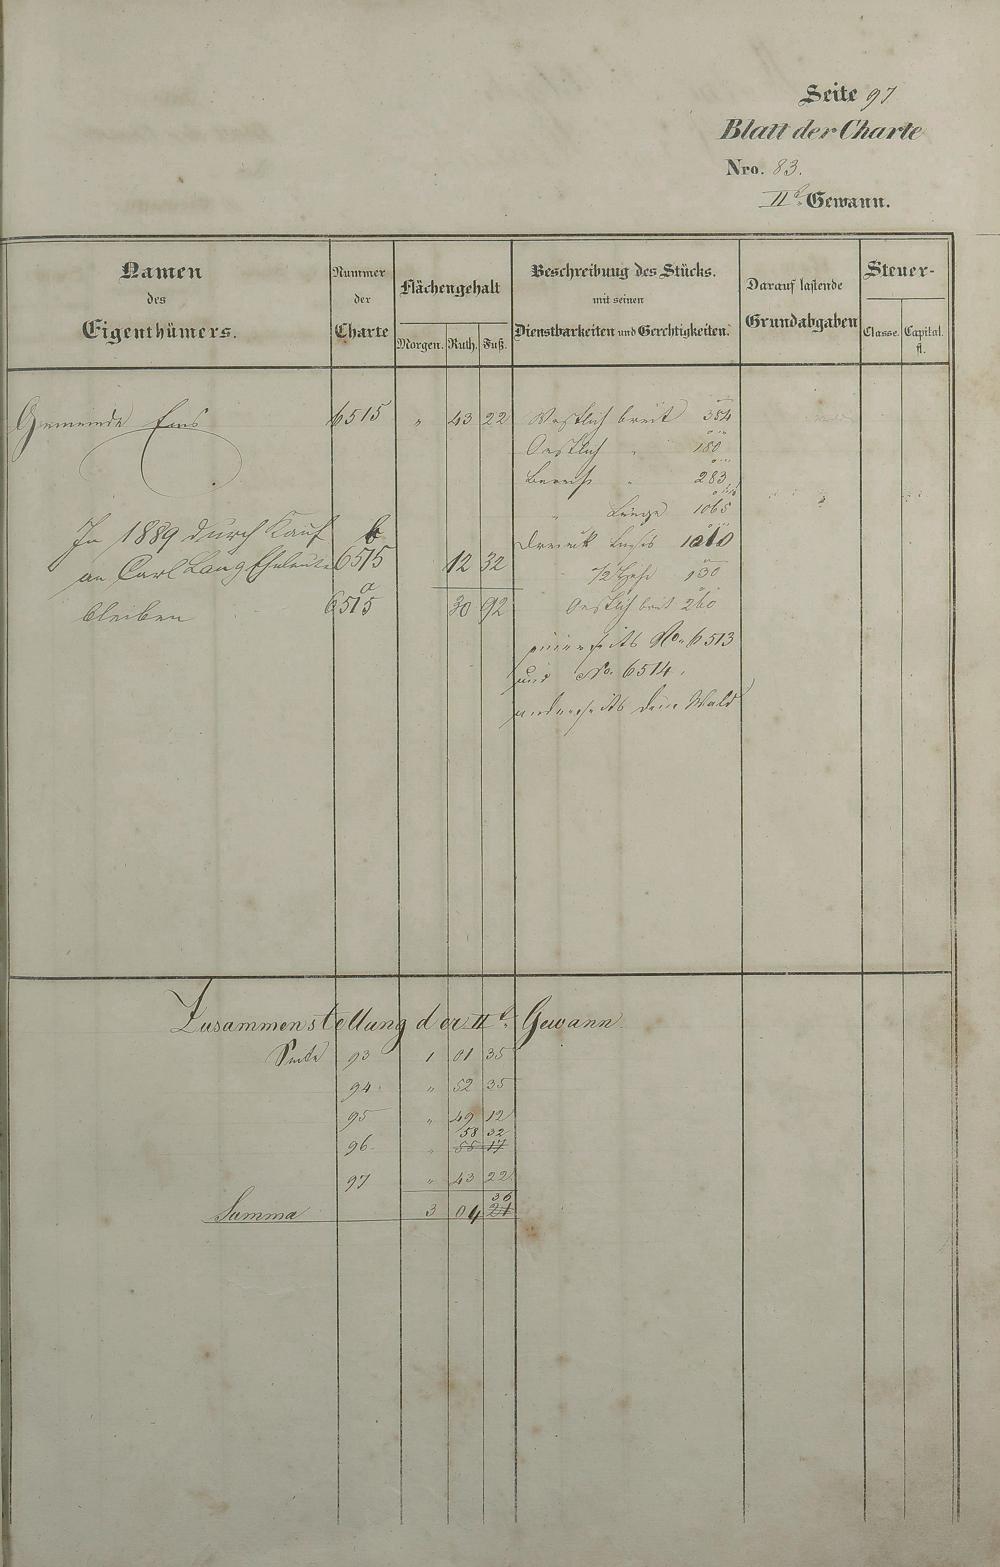 Seite 97
Blatt der Charte
Nro. 83.
IIte Gewann.
Namen des Eigenthümers.
Nummer der Charte
Flächengehalt
Morgen. Ruth. Fuß.
Beschreibung des Stücks.
mit seinen
Dienstbarkeiten und Gerechtigkeiten.
Darauf lastende
Grundabgaben
Steuer-
Classe. Capital. fl.
Gemeinde Ems 6515 " 43 22 Westlich breit 354
Oestlich " 180
" 283
" Länge 1065
In 1889 durch Kauf b
Dreieck Basis 1010
an Carl Lang Eheleute 6515 12 32
1/2 Höhe 130
a
bleiben 6515 30 92 Oestlich breit 260
einerseits No. 6513
und No. 6514.
anderseits dem Wald
Zusammenstellung der IIt. Gewann
Seite 93 1 01 35
94. " 52 35
95 " 49 12
58 32
96. " 58 17
97 " 43 22
36
Summa 3 04 21